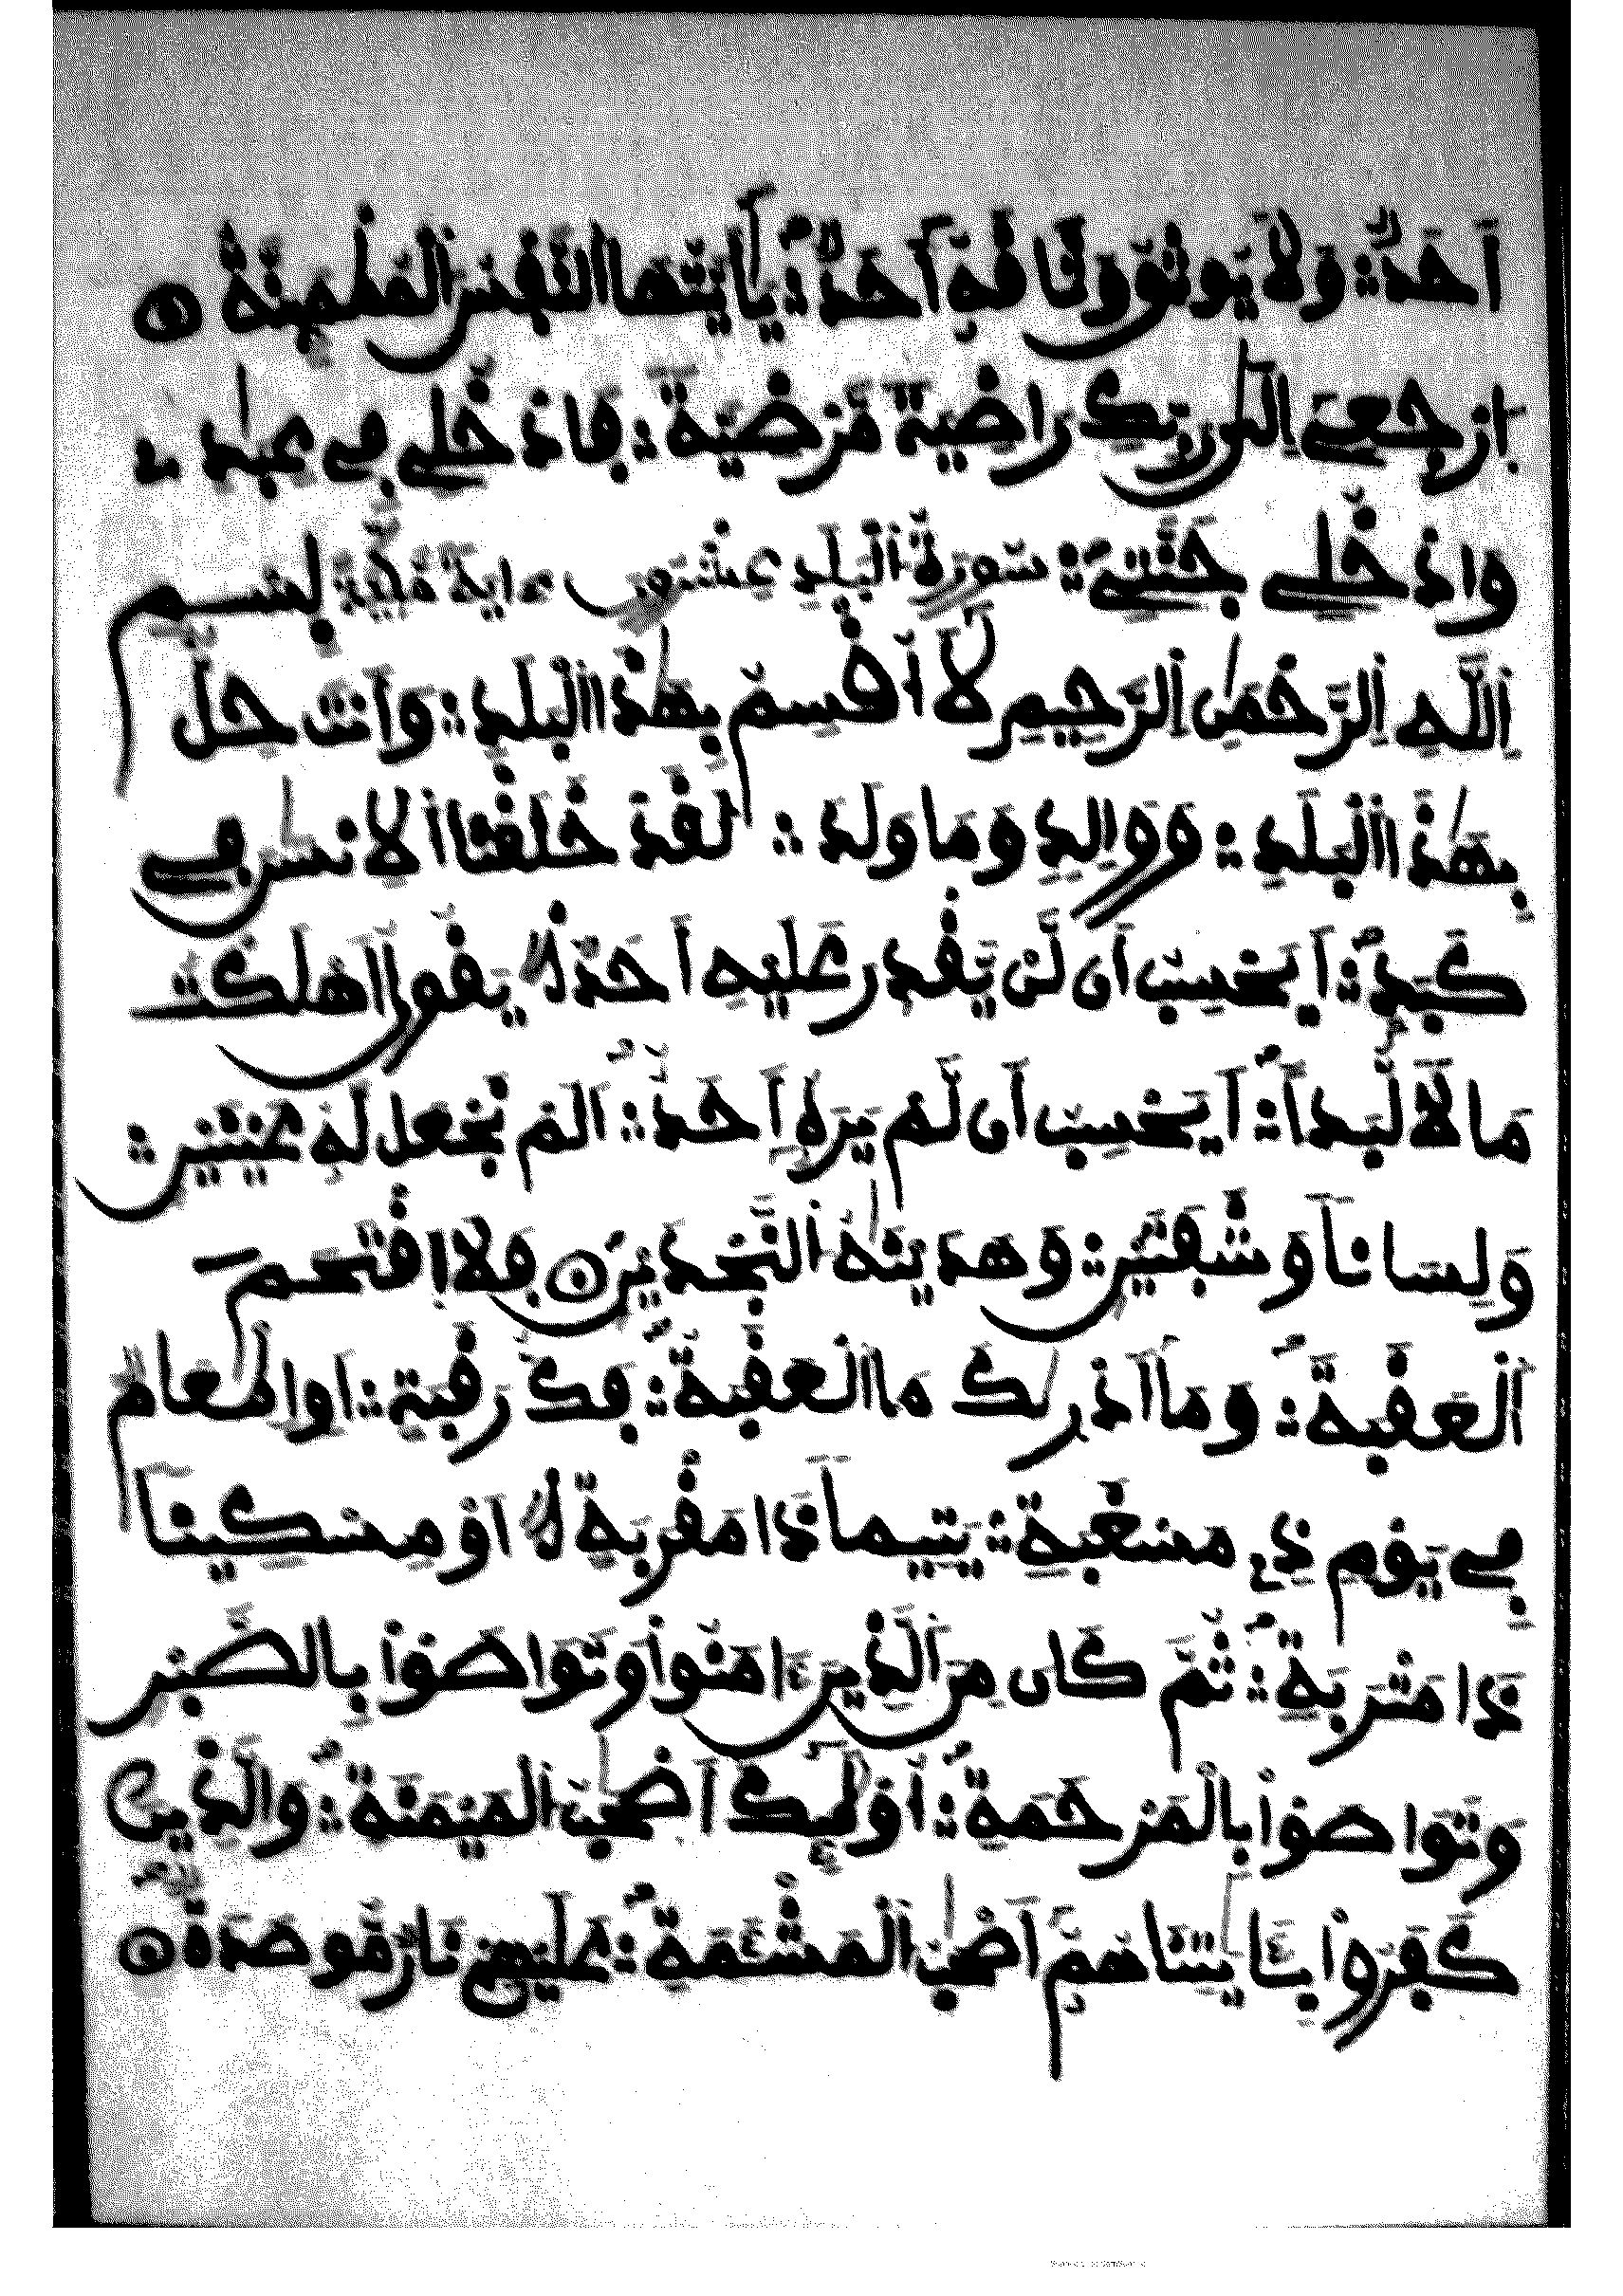 أَحَدٌ ۞ وَلَا يُوثِقُ وَثَاقَهُ أَحَدٌ ۞ يَٰأَيَّتُهَا النَّفْسُ الْمُطْمَئِنَّةُ ۞
ارْجِعِي إِلَىٰ رَبِّكِ رَاضِيَةً مَّرْضِيَّةً ۞ فَادْخُلِي فِي عِبَٰدِي
وَادْخُلِي جَنَّتِي ۞ سورة البلد عشرون ءاية مكية بِسْمِ
اللَّهِ الرَّحْمَٰنِ الرَّحِيمِ لَا أُقْسِمُ بِهَٰذَا الْبَلَدِ ۞ وَأَنتَ حِلٌّ
بِهَٰذَا الْبَلَدِ ۞ وَوَالِدٍ وَمَا وَلَدَ ۞ لَقَدْ خَلَقْنَا الْإِنسَٰنَ فِي
كَبَدٍ ۞ أَيَحْسِبُ أَن لَّن يَقْدِرَ عَلَيْهِ أَحَدٌ ۞ يَقُولُ أَهْلَكْتُ
مَالًا لُّبَدًا ۞ أَيَحْسِبُ أَن لَّمْ يَرَهُ أَحَدٌ ۞ أَلَمْ نَجْعَل لَّهُ عَيْنَيْنِ ۞
وَلِسَانًا وَشَفَتَيْنِ ۞ وَهَدَيْنَٰهُ النَّجْدَيْنِ ۞ فَلَا اقْتَحَمَ
الْعَقَبَةَ ۞ وَمَا أَدْرَىٰكَ مَا الْعَقَبَةُ ۞ فَكُّ رَقَبَةٍ ۞ أَوْ إِطْعَامٌ
فِي يَوْمٍ ذِي مَسْغَبَةٍ ۞ يَتِيمًا ذَا مَقْرَبَةٍ ۞ أَوْ مِسْكِينًا
ذَا مَتْرَبَةٍ ۞ ثُمَّ كَانَ مِنَ الَّذِينَ ءَامَنُوا وَتَوَاصَوْا بِالصَّبْرِ
وَتَوَاصَوْا بِالْمَرْحَمَةِ ۞ أُوْلَٰئِكَ أَصْحَٰبُ الْمَيْمَنَةِ ۞ وَالَّذِينَ
كَفَرُوا بِـَٔايَٰتِنَا هُمْ أَصْحَٰبُ الْمَشْـَٔمَةِ ۞ عَلَيْهِمْ نَارٌ مُّوصَدَةٌ ۞